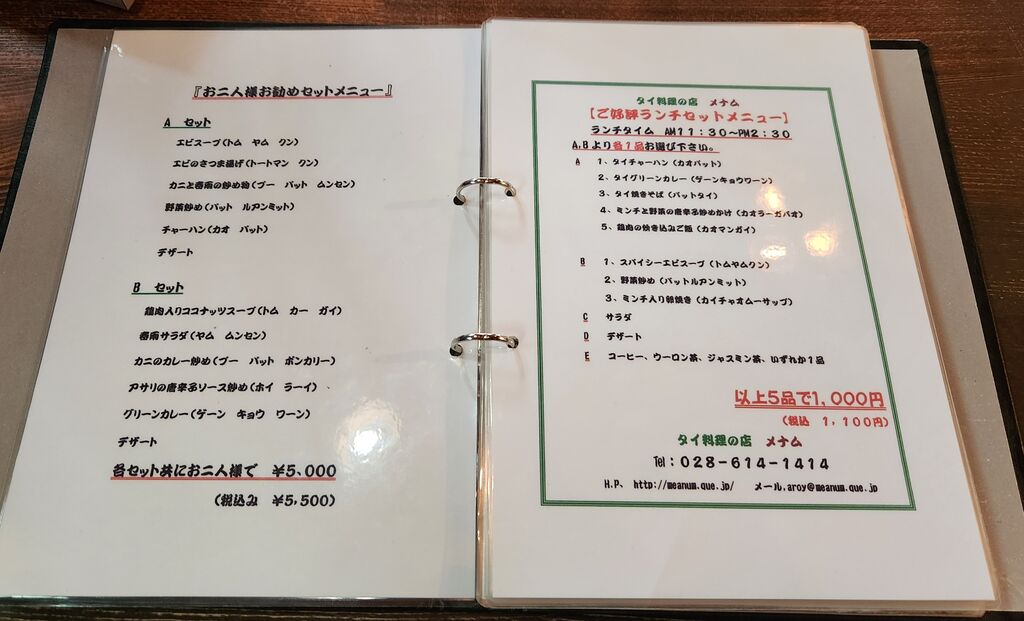 『お二人様お勧めセットメニュー』
A セット
エビスープ(トム ヤム クン)
エビのさつま揚げ(トートマン クン)
カニと春雨の炒め物(プー パット ムンセン)
野菜炒め(パット ルアンミット)
チャーハン(カオ パット)
デザート
B セット
鶏肉入りココナッツスープ(トム カー ガイ)
春雨サラダ(ヤム ムンセン)
カニのカレー炒め(プー パット ポンカリー)
アサリの唐辛子ソース炒め(ホイ ラーイ)
グリーンカレー(ゲーン キョウ ワーン)
デザート
各セット共にお二人様で ¥5,000
(税込み ¥5,500)
タイ料理の店 メナム
【ご好評ランチセットメニュー】
ランチタイム AM11:30~PM2:30
A,Bより各1品お選び下さい。
A 1、タイチャーハン(カオパット)
2、タイグリーンカレー(ゲーンキョウワーン)
3、タイ焼きそば(パットタイ)
4、ミンチと野菜の唐辛子炒めかけ(カオラーガパオ)
5、鶏肉の炊き込みご飯(カオマンガイ)
B 1、スパイシーエビスープ(トムヤムクン)
2、野菜炒め(パットルアンミット)
3、ミンチ入り卵焼き(カイチャオムーサップ)
C サラダ
D デザート
E コーヒー、ウーロン茶、ジャスミン茶、いずれか1品
以上5品で1,000円
(税込 1,100円)
タイ料理の店 メナム
Tel:028-614-1414
H.P、 http://meanum.que.jp/ メール.aroy@meanum.que.jp